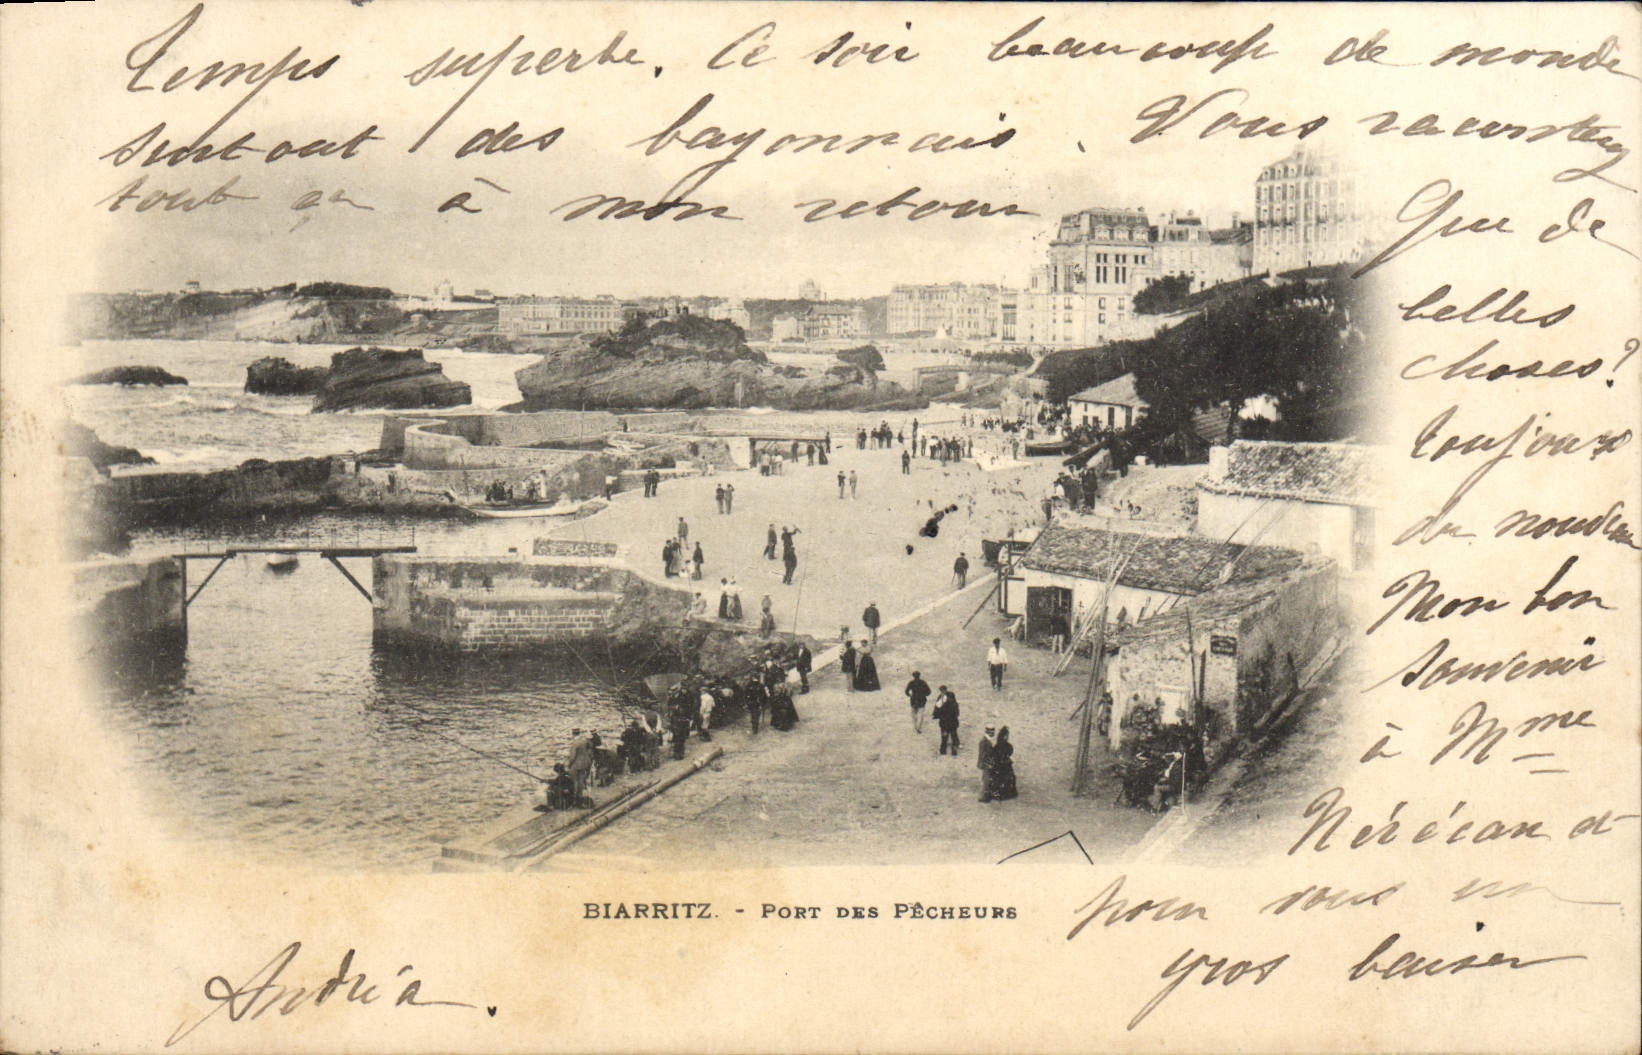 Temps superbe. Ce soir beaucoup de monde
surtout des bayonnais. Vous raconterez
tout ça à mon retour
Que de
belles
choses?
Toujours
du nouveau
Mon bon
souvenir
à Mme
et
pour vous un
gros baiser
BIARRITZ. - PORT DES PÊCHEURS
Andréa.